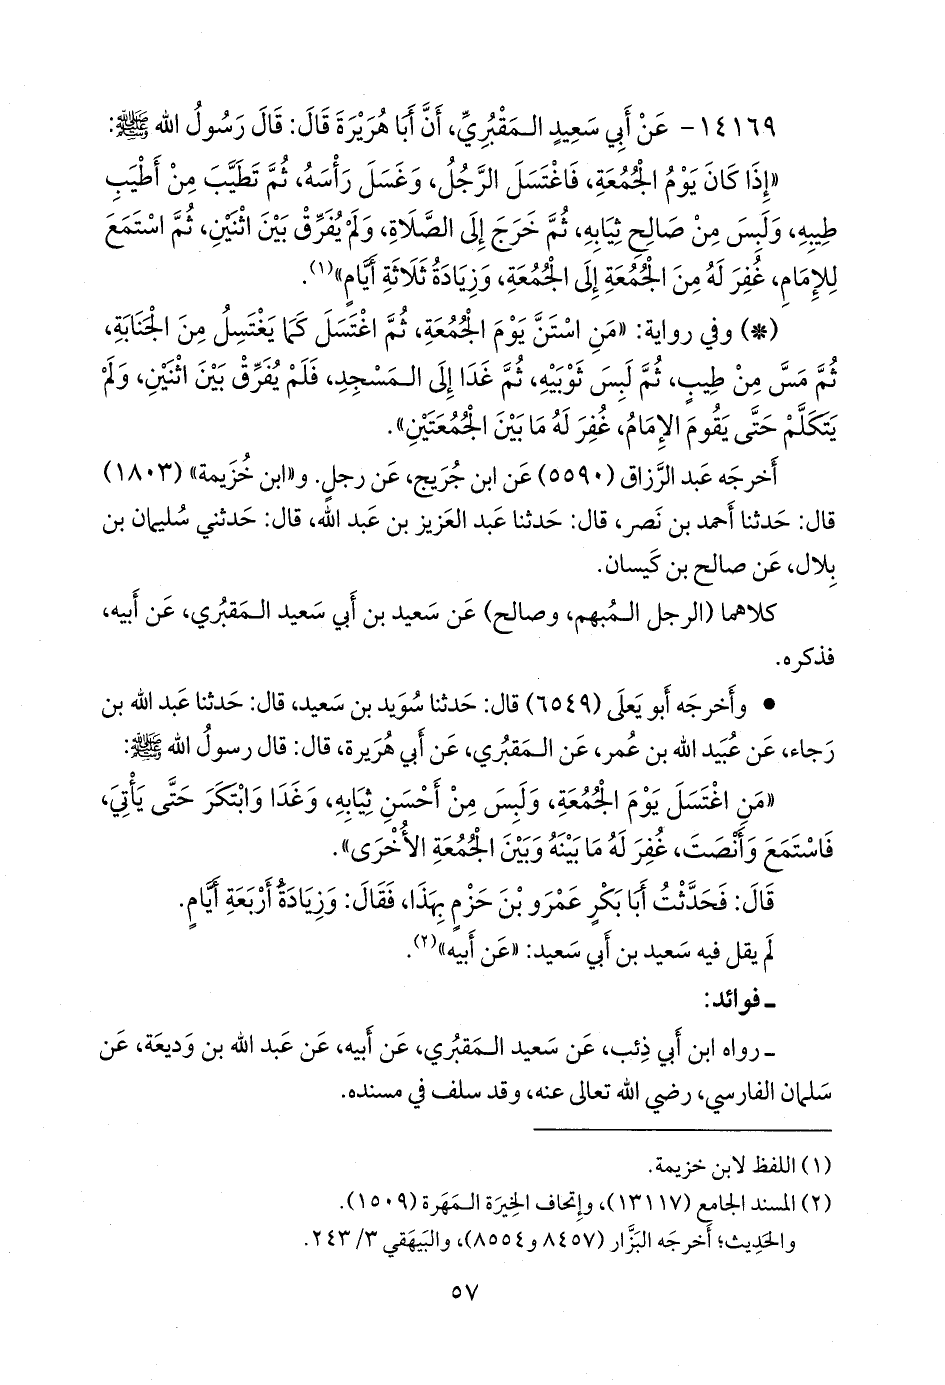 ١٤١٦٩- عَنْ أَبِي سَعِيدٍ الـمَقْبُرِيِّ، أَنَّ أَبَا هُرَيْرَةَ قَالَ: قَالَ رَسُولُ الله ﷺ:
«إِذَا كَانَ يَوْمُ الْجُمُعَةِ، فَاغْتَسَلَ الرَّجُلُ، وَغَسَلَ رَأْسَهُ، ثُمَّ تَطَيَّبَ مِنْ أَطْيَبِ
طِيبِهِ، وَلَبِسَ مِنْ صَالِحِ ثِيَابِهِ، ثُمَّ خَرَجَ إِلَى الصَّلَاةِ، وَلَمْ يُفَرِّقْ بَيْنَ اثْنَيْنِ، ثُمَّ اسْتَمَعَ
لِلإِمَامِ، غُفِرَ لَهُ مِنَ الْجُمُعَةِ إِلَى الْجُمُعَةِ، وَزِيَادَةُ ثَلَاثَةِ أَيَّامٍ»(١).
(*) وفي رواية: «مَنِ اسْتَنَّ يَوْمَ الْجُمُعَةِ، ثُمَّ اغْتَسَلَ كَمَا يَغْتَسِلُ مِنَ الْجَنَابَةِ،
ثُمَّ مَسَّ مِنْ طِيبٍ، ثُمَّ لَبِسَ ثَوْبَيْهِ، ثُمَّ غَدَا إِلَى الـمَسْجِدِ، فَلَمْ يُفَرِّقْ بَيْنَ اثْنَيْنِ، وَلَمْ
يَتَكَلَّمْ حَتَّى يَقُومَ الإِمَامُ، غُفِرَ لَهُ مَا بَيْنَ الْجُمُعَتَيْنِ».
أَخرجَه عَبد الرَّزاق (٥٥٩٠) عَن ابن جُرَيج، عَن رجلٍ. و«ابن خُزَيمة» (١٨٠٣)
قال: حَدثنا أَحمد بن نَصر، قال: حَدثنا عَبد العَزيز بن عَبد الله، قال: حَدثني سُليمان بن
بِلال، عَن صالح بن كَيسان.
كلاهما (الرجل الـمُبهم، وصالح) عَن سَعيد بن أَبي سَعيد الـمَقبُري، عَن أَبيه،
فذكره.
• وأَخرجَه أَبو يَعلَى (٦٥٤٩) قال: حَدثنا سُوَيد بن سَعيد، قال: حَدثنا عَبد الله بن
رَجاء، عَن عُبَيد الله بن عُمر، عَن الـمَقبُري، عَن أَبي هُرَيرة، قال: قال رسولُ الله ﷺ:
«مَنِ اغْتَسَلَ يَوْمَ الْجُمُعَةِ، وَلَبِسَ مِنْ أَحْسَنِ ثِيَابِهِ، وَغَدَا وَابْتَكَرَ حَتَّى يَأْتِيَ،
فَاسْتَمَعَ وَأَنْصَتَ، غُفِرَ لَهُ مَا بَيْنَهُ وَبَيْنَ الْجُمُعَةِ الأُخْرَى».
قَالَ: فَحَدَّثْتُ أَبَا بَكْرٍ عَمْرَو بْنَ حَزْمٍ بِهَذَا، فَقَالَ: وَزِيَادَةُ أَرْبَعَةِ أَيَّامٍ.
لَم يقل فيه سَعيد بن أَبي سَعيد: «عَن أَبيه»(٢).
ـ فوائد:
ـ رواه ابن أَبي ذِئب، عَن سَعيد الـمَقبُري، عَن أَبيه، عَن عَبد الله بن وَديعَة، عَن
سَلمان الفارسي، رضي الله تعالى عنه، وقد سلف في مسنده.
(١) اللفظ لابن خزيمة.
(٢) المسند الجامع (١٣١١٧)، وإتحاف الخِيرَة الـمَهَرة (١٥٠٩).
والحَدِيث؛ أَخرجَه البَزَّار (٨٤٥٧ و٨٥٥٤)، والبَيهَقي ٣/ ٢٤٣.
٥٧